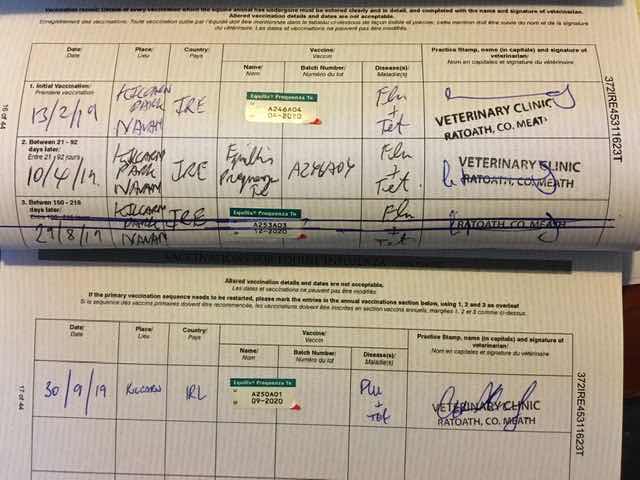 Vaccination (suite) Details of every vaccination which the equine animal has undergone must be entered clearly and in detail, and completed with the name and signature of veterinarian.
Altered vaccination details and dates are not acceptable.
Enregistrement des vaccinations. Toute vaccination subie par l'équidé doit être mentionnée dans le tableau ci-dessous de façon lisible et précise; cette mention doit être suivie du nom et de la signature
du vétérinaire. Les dates et vaccinations ne peuvent pas être modifiés.
Date/ Place/ Country/ Vaccine/ Practice Stamp, name (in capitals) and signature of
Date Lieu Pays Vaccin veterinarian/
Name/ Batch Number/ Disease(s)/ Nom en capitales et signature du vétérinaire
Nom Numéro du lot Maladie(s)
1. Initial Vaccination/
Première vaccination
13/2/19 KILCARN PARK NAVAN IRE Equilis® Prequenza Te A246A04 04-2020 Flu + Tet VETERINARY CLINIC
RATOATH, CO. MEATH
2. Between 21 - 92
days later/
Entre 21 - 92 jours
10/4/19. KILCARN PARK NAVAN IRE Equilis Prequenza Te A246A04 Flu + Tet. VETERINARY CLINIC
RATOATH, CO. MEATH
3. Between 150 - 215
days later/
29/8/19 KILCARN PARK NAVAN IRE Equilis® Prequenza Te A253A03 12-2020 Flu + Tet RATOATH, CO. MEATH
16 of 44
372IRE45311623T
VACCINATIONS FOR EQUINE INFLUENZA
Altered vaccination details and dates are not acceptable.
Les dates et vaccinations ne peuvent pas être modifiés.
If the primary vaccination sequence needs to be restarted, please mark the entries in the annual vaccinations section below, using 1, 2 and 3 as overleaf
Si la séquence des vaccins primaires doivent être recommencés, les vaccinations doivent être inscrites en section vaccins annuels, margiées 1, 2 et 3 comme ci-dessus.
Date/ Place/ Country/ Vaccine/ Practice Stamp, name (in capitals) and signature of
Date Lieu Pays Vaccin veterinarian/
Name/ Batch Number: Disease(s)/ Nom en capitales et signature du vétérinaire
Nom Numéro du lot Maladie(s)
30/9/19 KILCARN IRL Equilis® Prequenza Te A250A01 09-2020 Flu + Tet VETERINARY CLINIC
RATOATH, CO. MEATH
17 of 44
372IRE45311623T